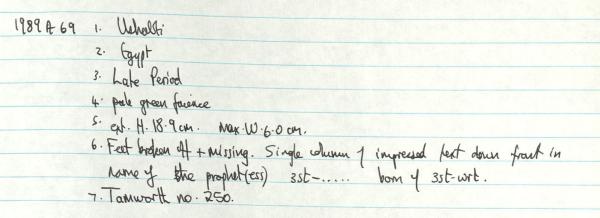 1989 A 69 1. Ushabti
2. Egypt
3. Late Period
4. pale green faience
5. ext. H. 18.9 cm. Max. W. 6.0 cm.
6. Feet broken off + missing. Single column of impressed text down front in
name of the prophet(ess) 3st-..... born of 3st-wrt.
7. Tamworth no. 250.